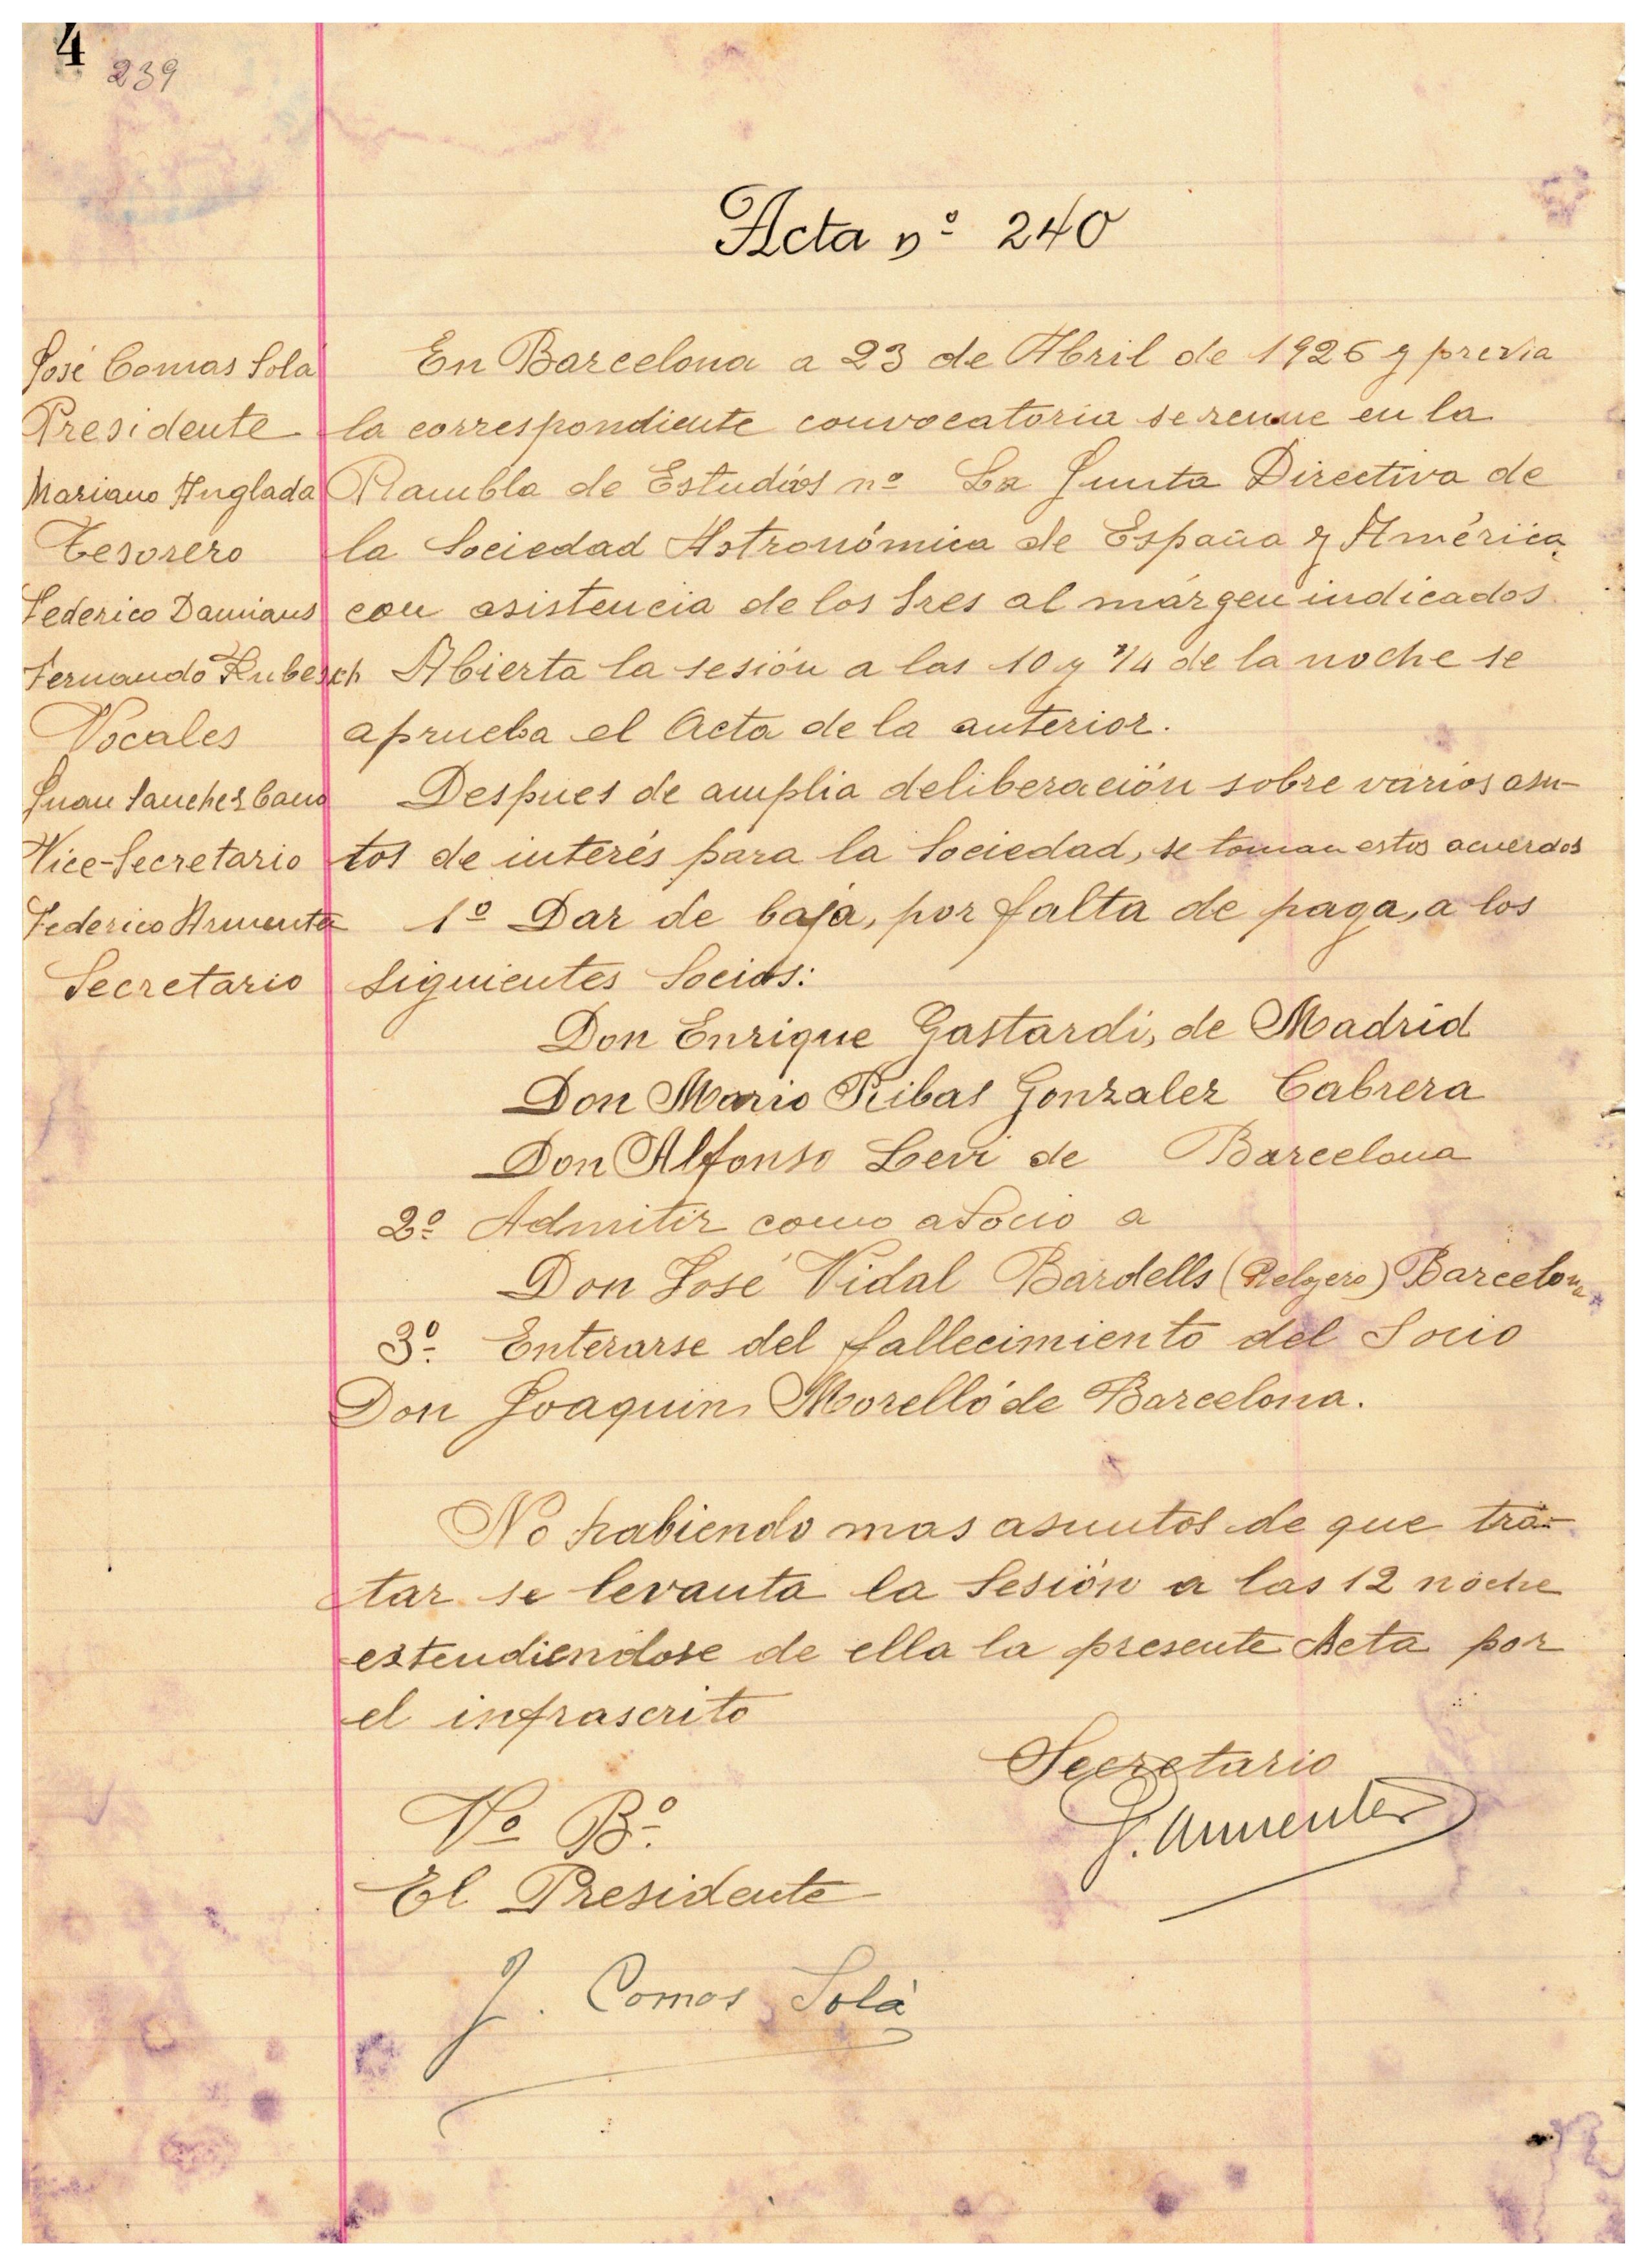 4
239
Acta nº 240
José Comas Solá
Presidente
Mariano Anglada
Tesorero
Federico Damians
Fernando Kubesch
Vocales
Juan Sanchez Cano
Vice-Secretario
Federico Armenter
Secretario
En Barcelona a 23 de Abril de 1926 y previa
la correspondiente convocatoria se reune en la
Rambla de Estudios nº La Junta Directiva de
la Sociedad Astronómica de España y América,
con asistencia de los Sres al márgen indicados
Abierta la sesión a las 10 y 1/4 de la noche se
aprueba el Acta de la anterior.
Despues de amplia deliberación sobre varios asun-
tos de interés para la Sociedad, se toman estos acuerdos
1º Dar de baja, por falta de paga, a los
siguientes Socios:
Don Enrique Gastardi, de Madrid
Don Mario Ribas Gonzalez Cabrera
Don Alfonso Levi de Barcelona
2º Admitir como a Socio a
Don José Vidal Bardells ( ) Barcelona
3º Enterarse del fallecimiento del Socio
Don Joaquin Morelló de Barcelona.
No habiendo mas asuntos de que tra-
tar se levanta la Sesión a las 12 noche
estendiendose de ella la presente Acta por
el infrascrito
Secretario
F. Armenter
Vº Bº
El Presidente
J. Comas Solá